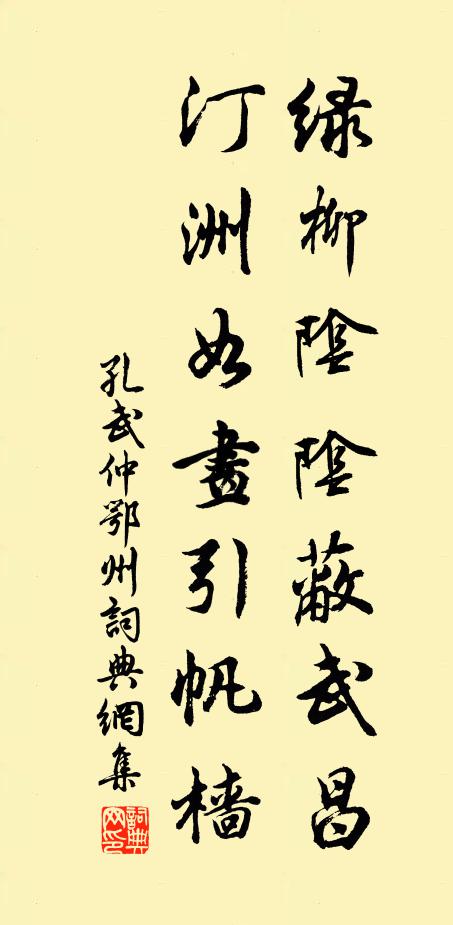 綠柳陰陰蔽武昌
汀洲如畫引帆檣
孔武仲鄂州詞典網集
詞典網印